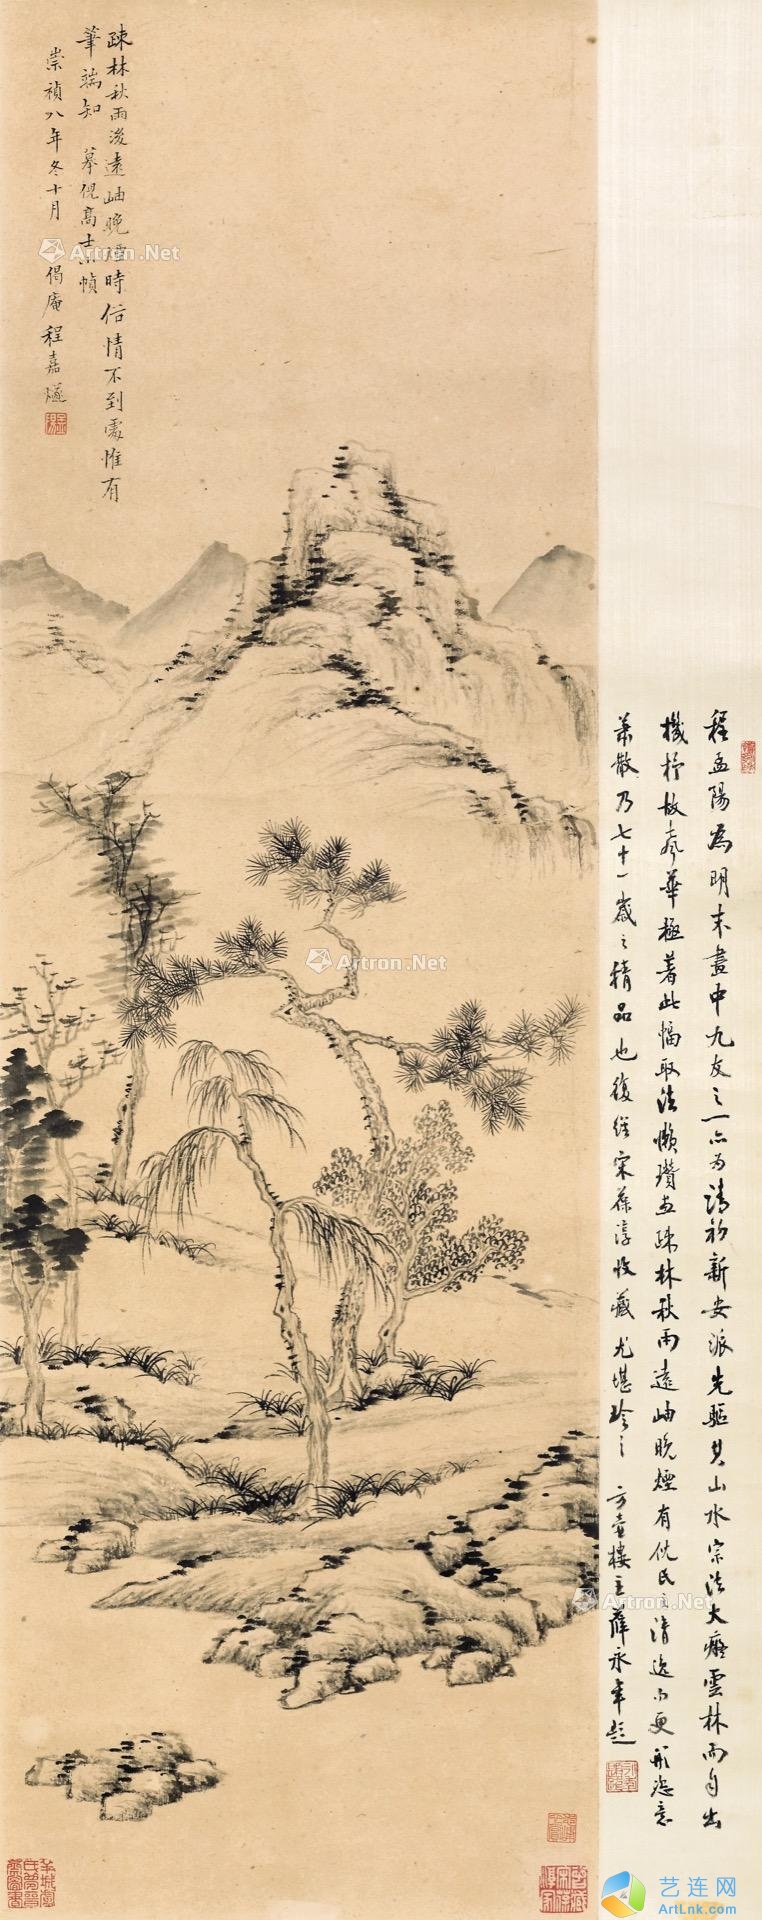 疎林秋雨後遠岫晚煙時俗情不到處惟有
筆端知 摹倪高士小幀
崇禎八年冬十月 偈庵程嘉燧
程孟陽為明末畫中九友之一亦为清初新安派先驅其山水宗法大癡雲林而自出
機杼故聲華極著此幅取法懶瓚画疎林秋雨遠岫晚煙有倪氏之清逸而更形恣意
蕭散乃七十一歲之精品也復經宋葆淳收藏尤堪珍之 方壺樓主薛永年題
Artron.Net
Artron.Net
Artron.Net
艺连网
ArtLnk.com